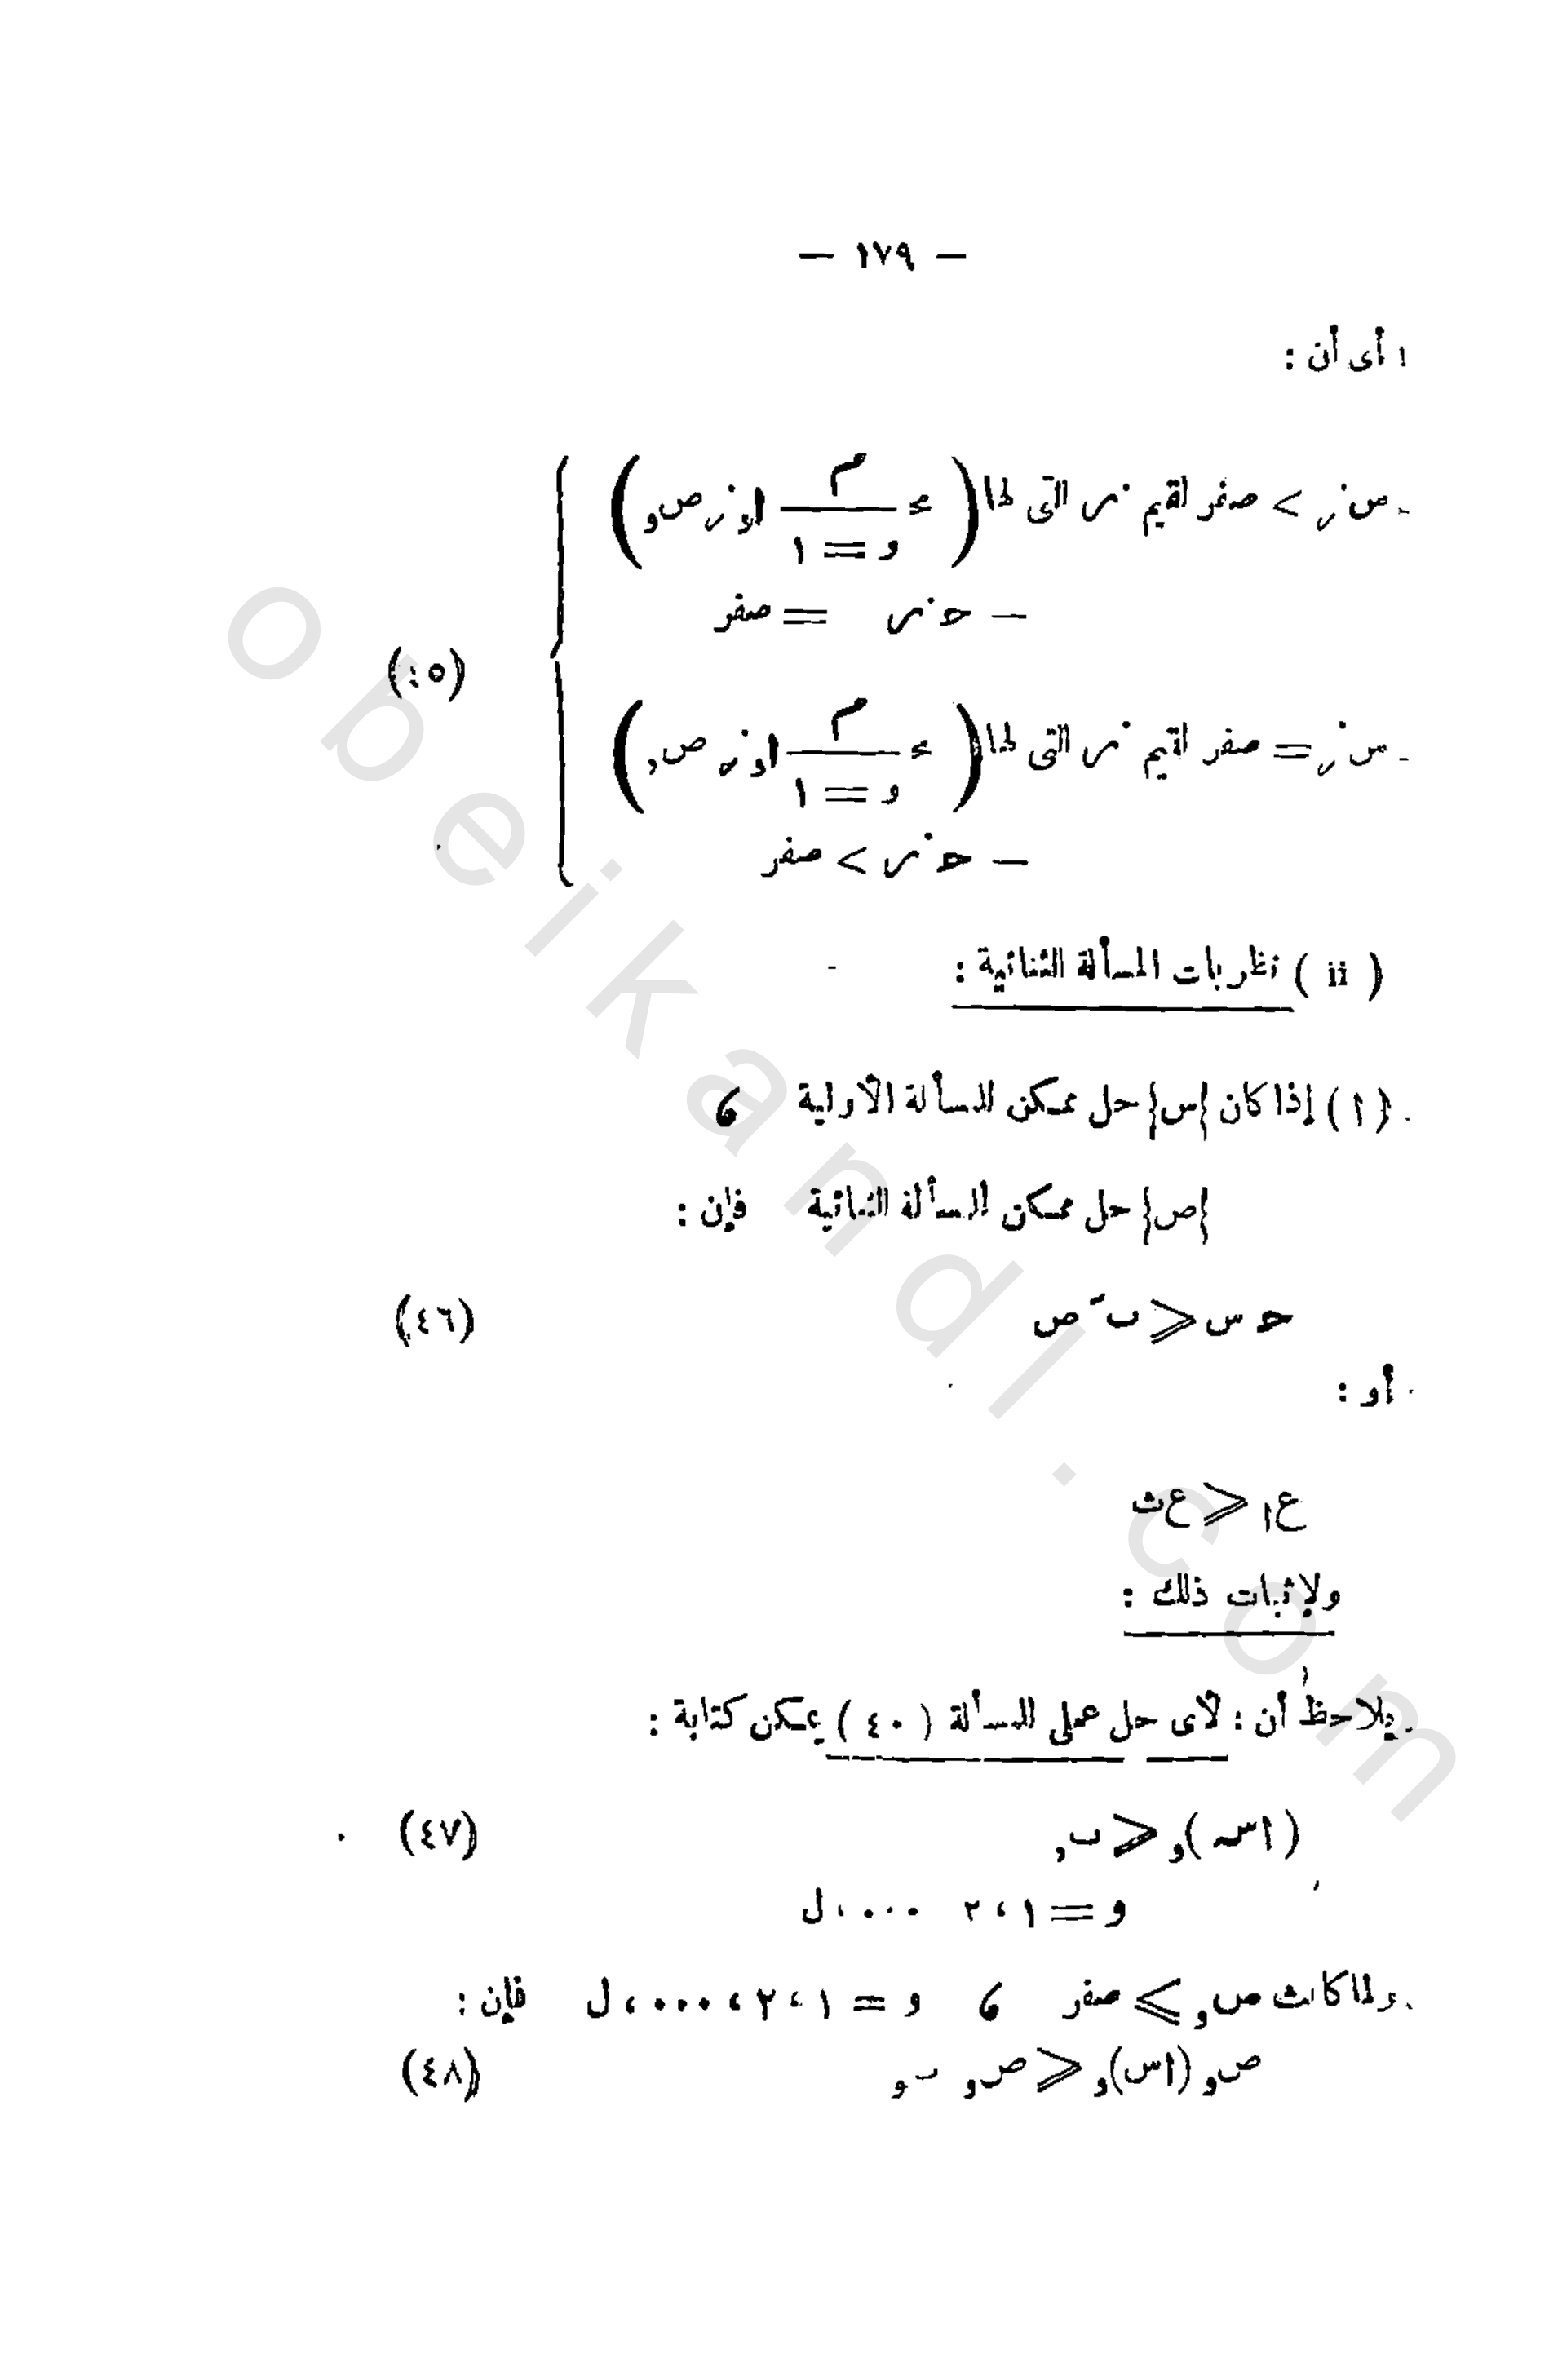 — ١٧٩ —
أى أن :
س ز > صفر لقيم ز التى لها ( مجـ م و = ١ ا و ز ص و )
— حـ ز = صفر
(٤٥)
س ز = صفر لقيم ز التى لها ( مجـ م و = ١ ا و ز ص و )
— حـ ز > صفر
( ii ) نظريات المسألة الثنائية :
(١) إذا كان {س} حل ممكن للمسألة الأولية ،
{ص} حل ممكن للمسألة الثنائية فإن :
حـ س ⩽ بَ ص (٤٦)
أو :
ع ا ⩽ ع ث
ولإثبات ذلك :
يلاحظ أن : لأى حل عملى للمسألة ( ٤٠ ) يمكن كتابة :
( ا س ) و ⩽ ب و (٤٧)
و = ١ ، ٢ ٠٠٠ ، ل
ولما كانت ص و ⩾ صفر ، و = ١ ، ٢ ، ٠٠٠ ، ل فإن :
ص و (ا س) و ⩽ ص و ب و (٤٨)
obeikandl.com